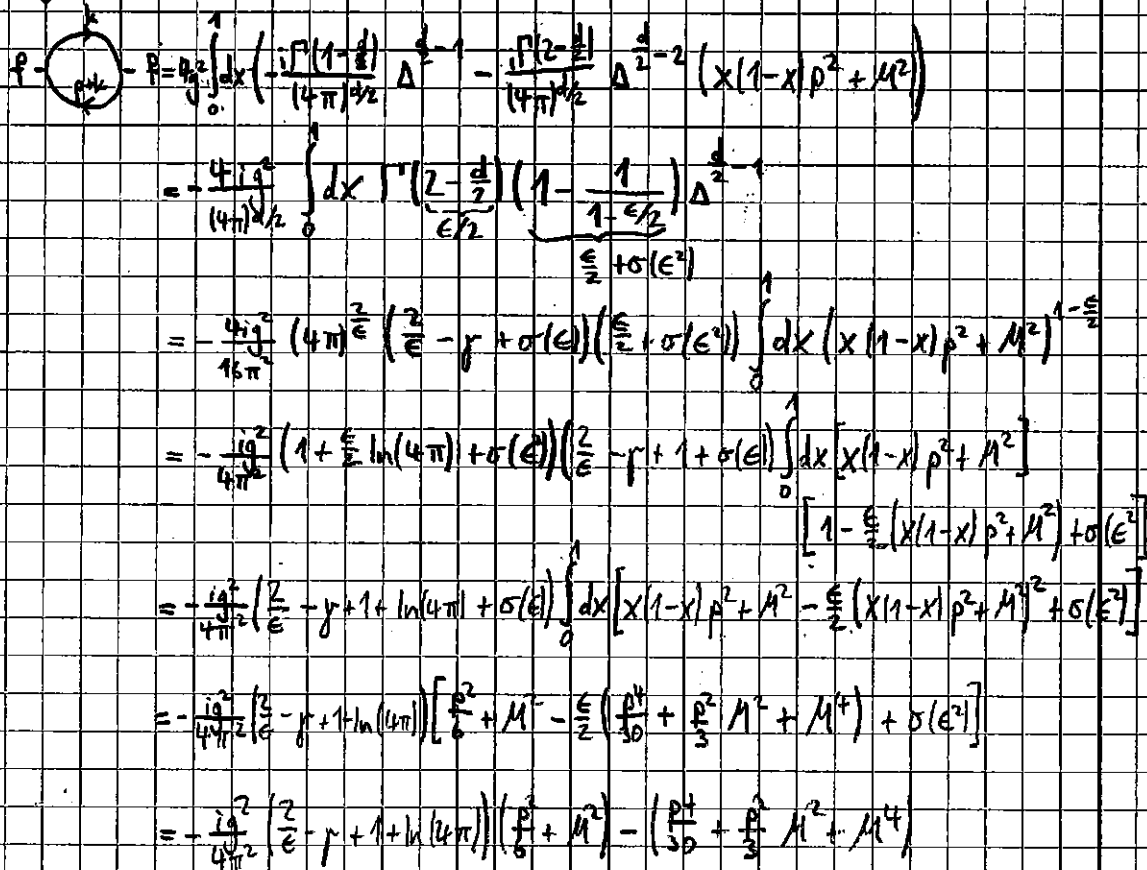 p - k p+k - p = 4g² ∫₀¹ dx ( - iΓ(1-d/2)/(4π)^{d/2} Δ^{d/2-1} - iΓ(2-d/2)/(4π)^{d/2} Δ^{d/2-2} (x(1-x)p² + M²))
= - 4ig²/(4π)^{d/2} ∫₀¹ dx Γ(2-d/2) (1 - 1/(1-ε/2)) Δ^{d/2-1}
ε/2
ε/2 + σ(ε²)
= - 4ig²/16π² (4π)^{2/ε} (2/ε - γ + σ(ε)) (ε/2 + σ(ε²)) ∫₀¹ dx (x(1-x)p² + M²)^{1-ε/2}
= - ig²/4π² (1 + ε/2 ln(4π) + σ(ε²)) (2/ε - γ + 1 + σ(ε)) ∫₀¹ dx [x(1-x)p² + M²]
[1 - ε/2 (x(1-x)p² + M²) + σ(ε²)]
= - ig²/4π² (2/ε - γ + 1 + ln(4π) + σ(ε)) ∫₀¹ dx [x(1-x)p² + M² - ε/2 (x(1-x)p² + M²)² + σ(ε²)]
= - ig²/4π² (2/ε - γ + 1 + ln(4π)) [p²/6 + M² - ε/2 (p⁴/30 + p²/3 M² + M⁴) + σ(ε²)]
= - ig²/4π² (2/ε - γ + 1 + ln(4π)) (p²/6 + M²) - (p⁴/30 + p²/3 M² + M⁴)